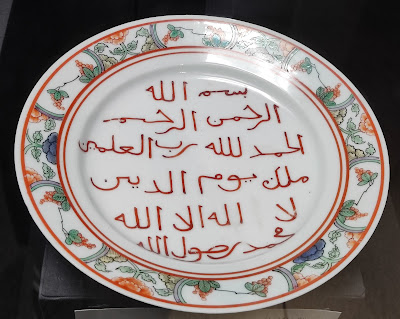 بسم الله
الرحمن الرحيم
الحمد لله رب العلمين
ملك يوم الدين
لا اله الا الله
محمد رصول الله